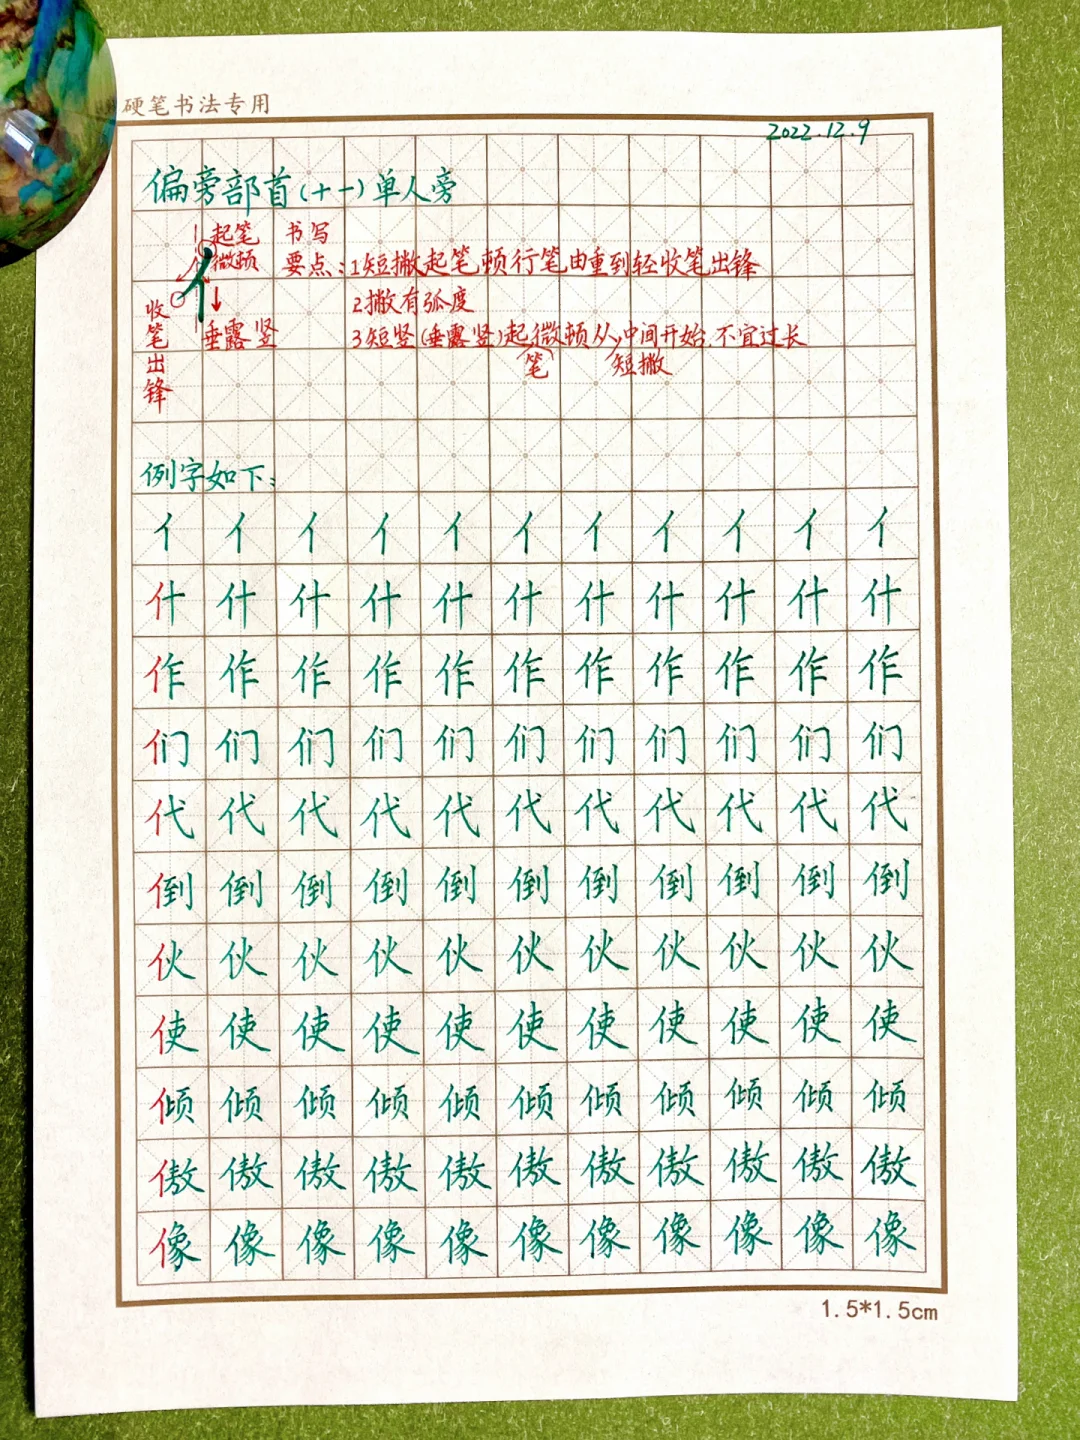 硬笔书法专用
2022.12.9
偏旁部首(十一)单人旁
起笔
微顿
收笔出锋
垂露竖
书写
要点:1短撇起笔顿行笔由重到轻收笔出锋
2撇有弧度
3短竖(垂露竖)起笔微顿从短撇中间开始,不宜过长
例字如下:
亻亻亻亻亻亻亻亻亻亻亻
什什什什什什什什什什什
作作作作作作作作作作作
们们们们们们们们们们们
代代代代代代代代代代代
倒倒倒倒倒倒倒倒倒倒倒
伙伙伙伙伙伙伙伙伙伙伙
使使使使使使使使使使使
倾倾倾倾倾倾倾倾倾倾倾
傲傲傲傲傲傲傲傲傲傲傲
像像像像像像像像像像像
1.5*1.5cm